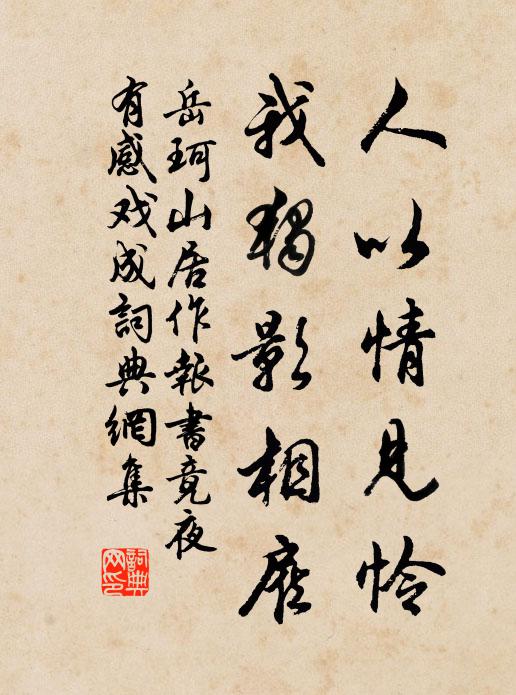 人以情見怜
我獨影相應
岳珂山居作報書竟夜
有感戏成詞典網集
詞典
网印